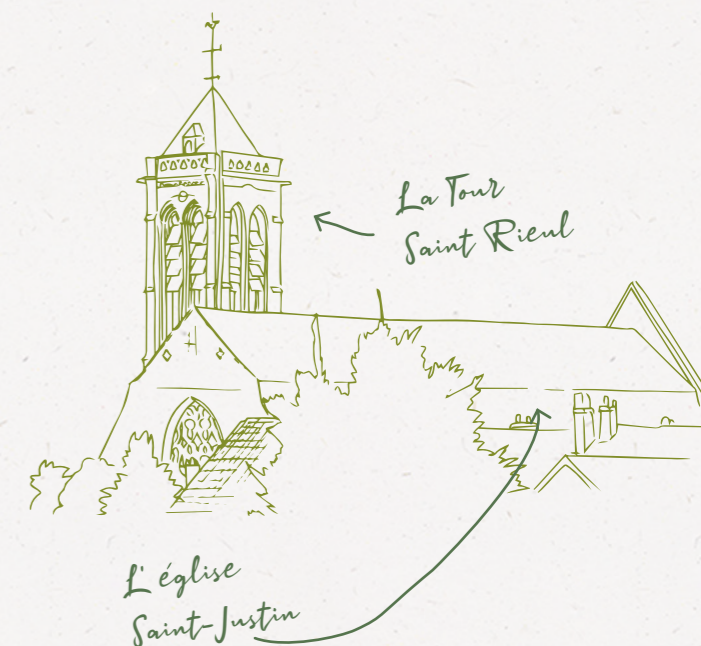 La Tour
Saint Rieul
L' église
Saint-Justin